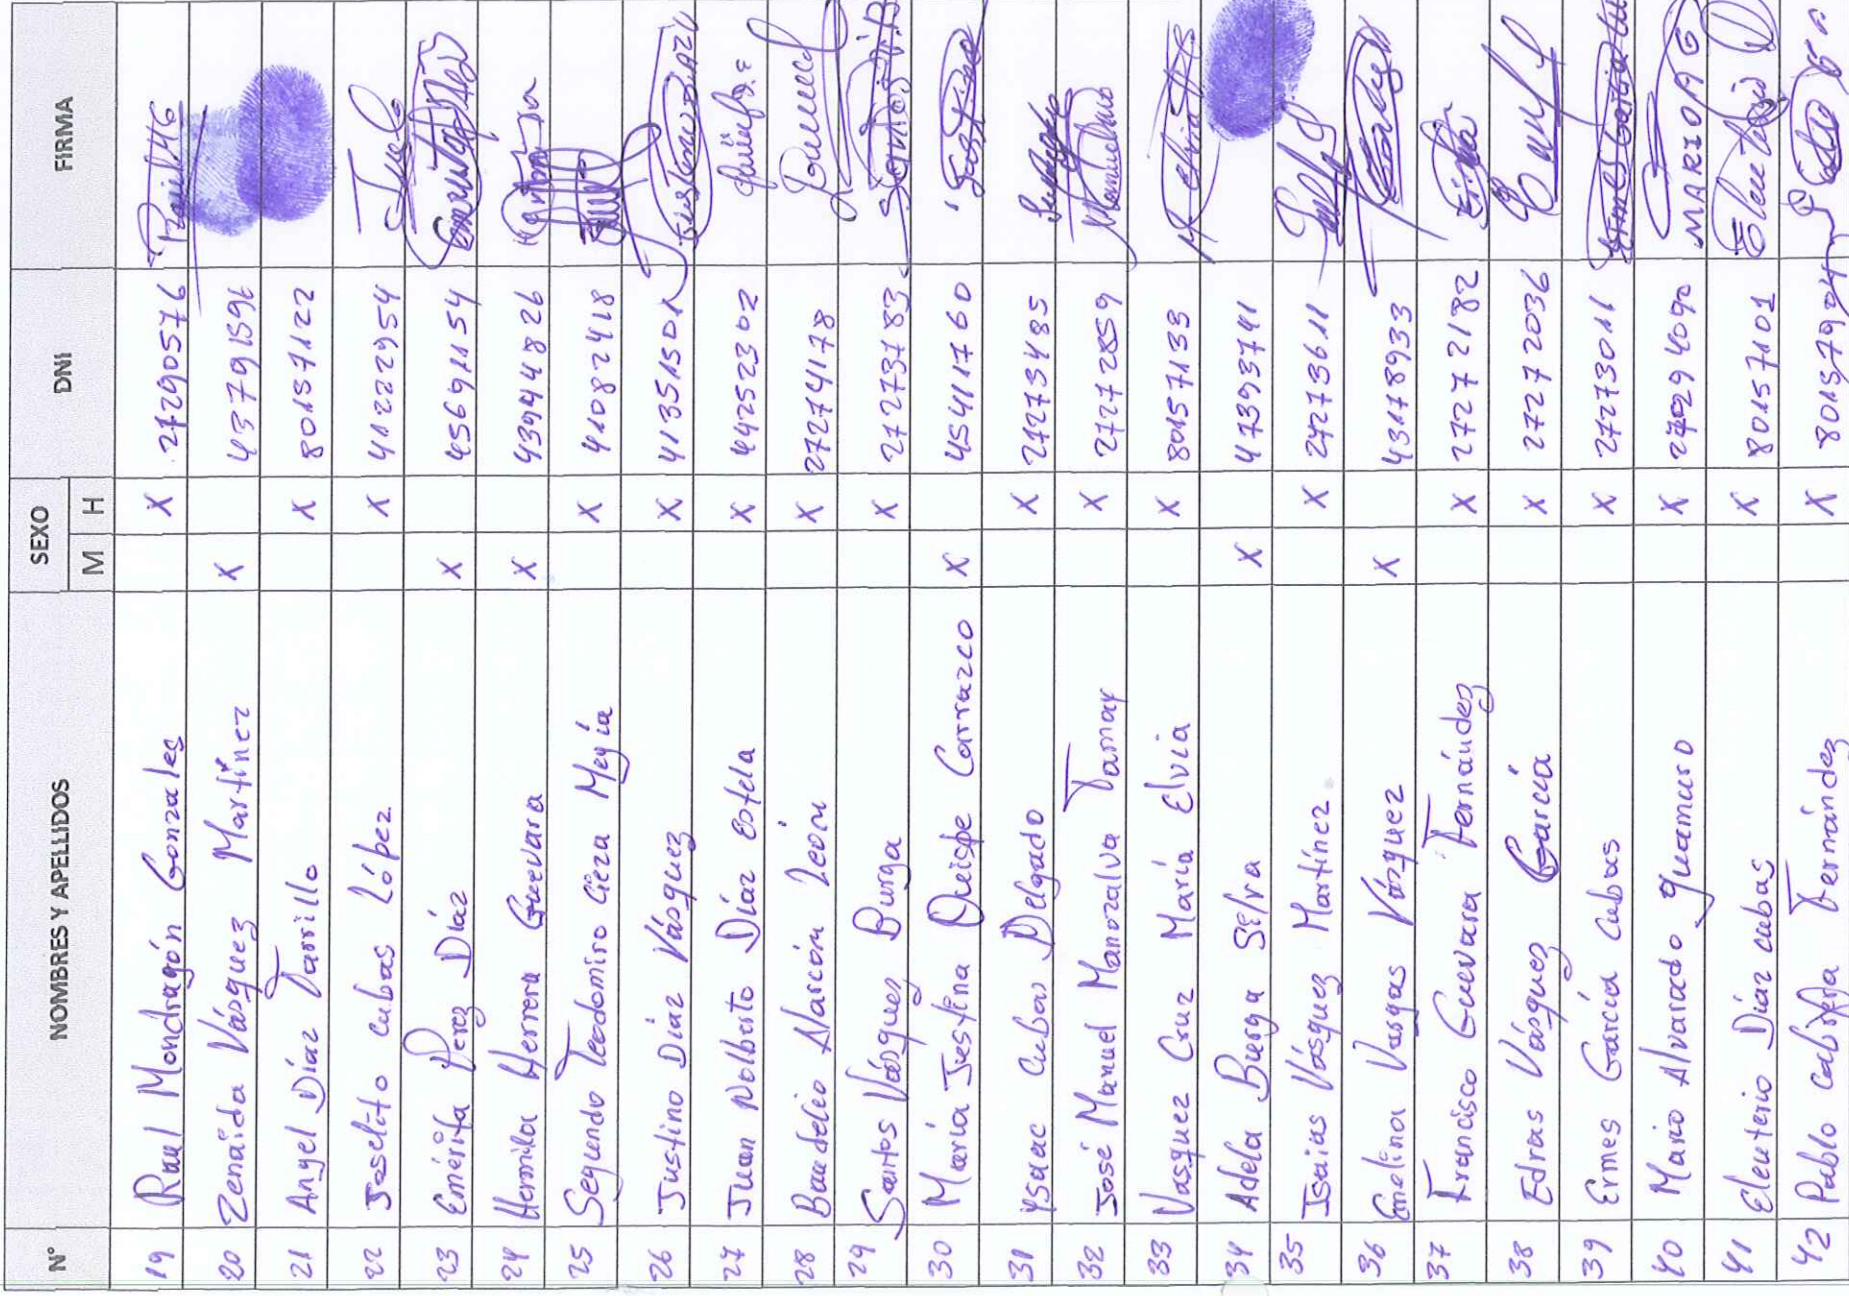 N° NOMBRES Y APELLIDOS SEXO DNI FIRMA
M H
19 Raul Mondragón Gonzales X 27290576
20 Zenaida Vásquez Martínez X 43791596
21 Angel Díaz Tarrillo X 80157122
22 Joselito cubas López X 41222954
23 Emérita Perez Díaz X 45691154
24 Hermila Herrera Guevara X 43944826
25 Segundo Teodomiro Cieza Mejía X 41082418
26 Justino Díaz Vásquez X 41351501 Justino DIAZV
27 Juan Nolberto Díaz Estela X 44252302
28 Baudelio Alarcón León X 27274178
29 Santos Vásquez Burga X 27273783
30 María Jestina Quispe Carrazco X 45411760
31 Ysaac Cubas Delgado X 27273485
32 José Manuel Manozalva Tamay X 27272859
33 Vasquez Cruz María Elvia X 80157133
34 Adela Burga Silva X 47393741
35 Isaias Vásquez Martínez X 27273611
36 Emelina Vargas Vásquez X 43178933
37 Francisco Guevara Fernández X 27272182
38 Edras Vásquez García X 27272036
39 Ermes García cubas X 27273011
40 Mario Alvarado Guamuro X MARIO A G
41 Eleuterio Díaz cubas X 80157101
42 Pablo Fernández X